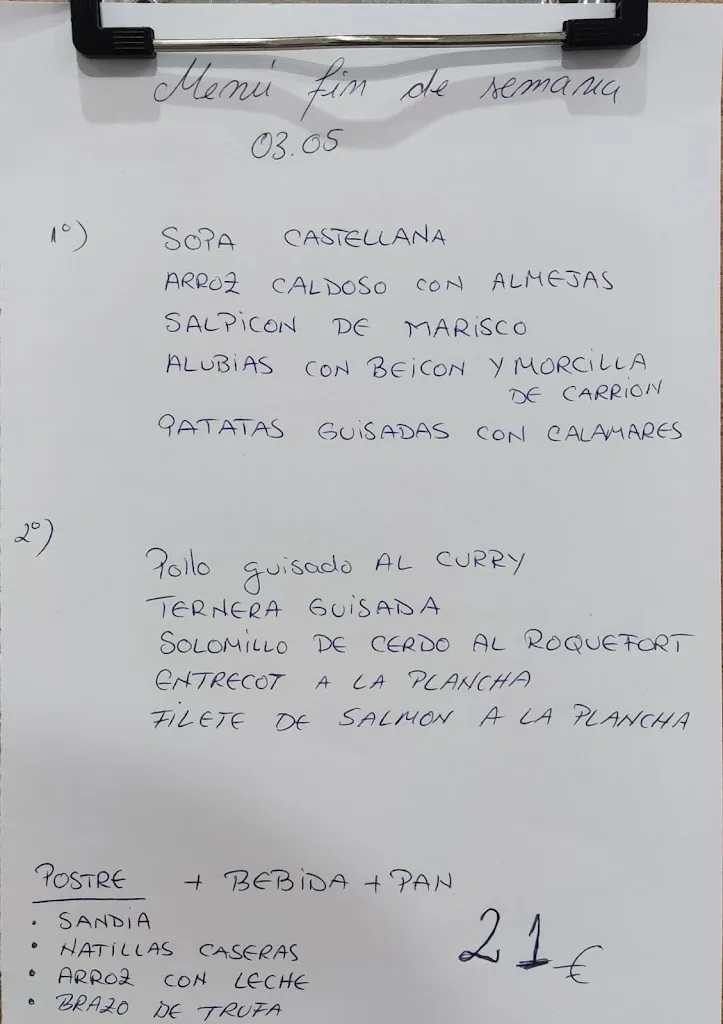 Menú fin de semana
03.05
1º) SOPA CASTELLANA
ARROZ CALDOSO CON ALMEJAS
SALPICON DE MARISCO
ALUBIAS CON BEICON Y MORCILLA
DE CARRION
PATATAS GUISADAS CON CALAMARES
2º)
Pollo guisado AL CURRY
TERNERA GUISADA
SOLOMILLO DE CERDO AL ROQUEFORT
ENTRECOT A LA PLANCHA
FILETE DE SALMON A LA PLANCHA
POSTRE + BEBIDA + PAN
• SANDIA
• NATILLAS CASERAS
• ARROZ CON LECHE
• BRAZO DE TRUFA
21 €